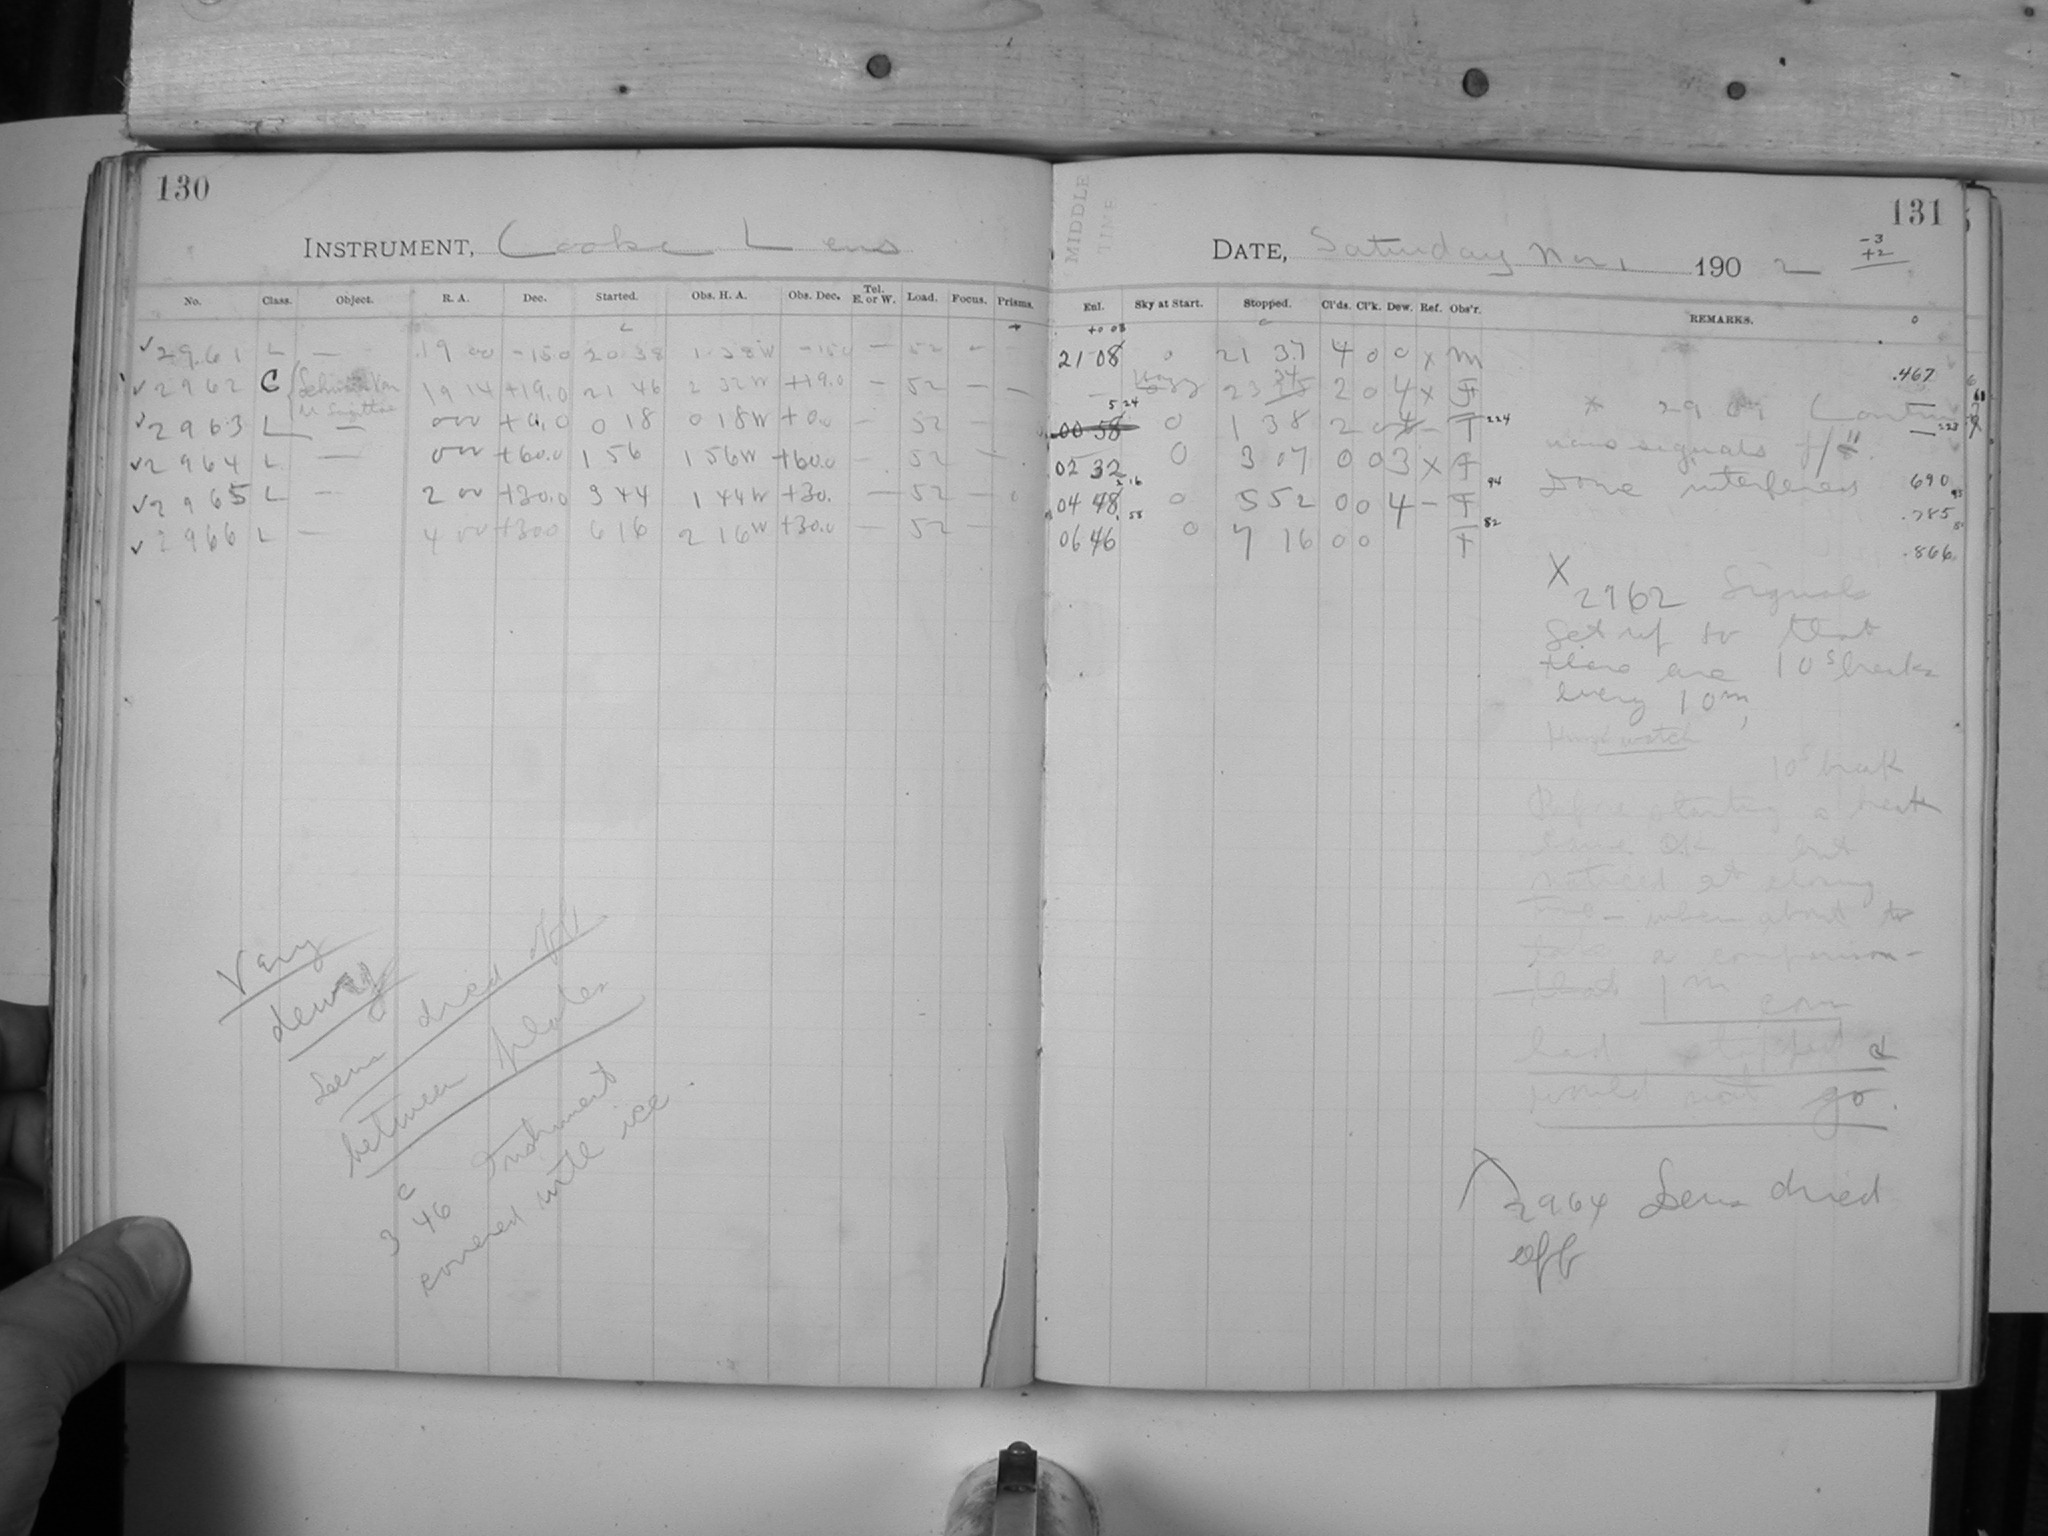 130
INSTRUMENT, Cooke Lens
No. Class. Object. R. A. Dec. Started. Obs. H. A. Obs. Dec. Tel. E. or W. Load. Focus. Prisms.
✓ 2961 L — 19 00 -15.0 20 38 1 38 W -15.0 — 52 -
✓ 2962 C 19 14 +19.0 21 46 2 32 W +19.0 — 52 — —
✓ 2963 L — 0 00 +0.0 0 18 0 18 W +0.0 — 52 —
✓ 2964 L — 0 00 +60.0 1 56 1 56 W +60.0 - 52 —
✓ 2965 L — 2 00 +30.0 3 44 1 44 W +30. — 52 —
✓ 2966 L — 4 00 +30.0 6 16 2 16 W +30.0 — 52 —
Very
dewy
Lens dried off
between plates
3 46 Instrument
covered with ice.
131
MIDDLE
TIME
DATE, Saturday Nov 1 1902
-3
+2
Enl. Sky at Start. Stopped. Cl'ds. Cl'k. Dew. Ref. Obs'r. REMARKS.
21 08 0 21 37 4 0 0 x M
.467
— Hazy 23 34 2 0 4 x F
5 24
00 58 0 1 38 2 0 4 - F 224
02 32 0 3 07 0 0 3 x F
2 16
04 48 0 5 52 0 0 4 - F 94
690
.785
06 46 0 7 16 0 0 F 82
.866
Some interference
X 2962 Signals
Set up so that
there are 10s breaks
every 10m,
watch
10s break
Before starting a break
OK but
noticed at closing
time - when about to
take a comparison -
that 1m com
had stopped &
would not go.
X 2964 Lens dried
off